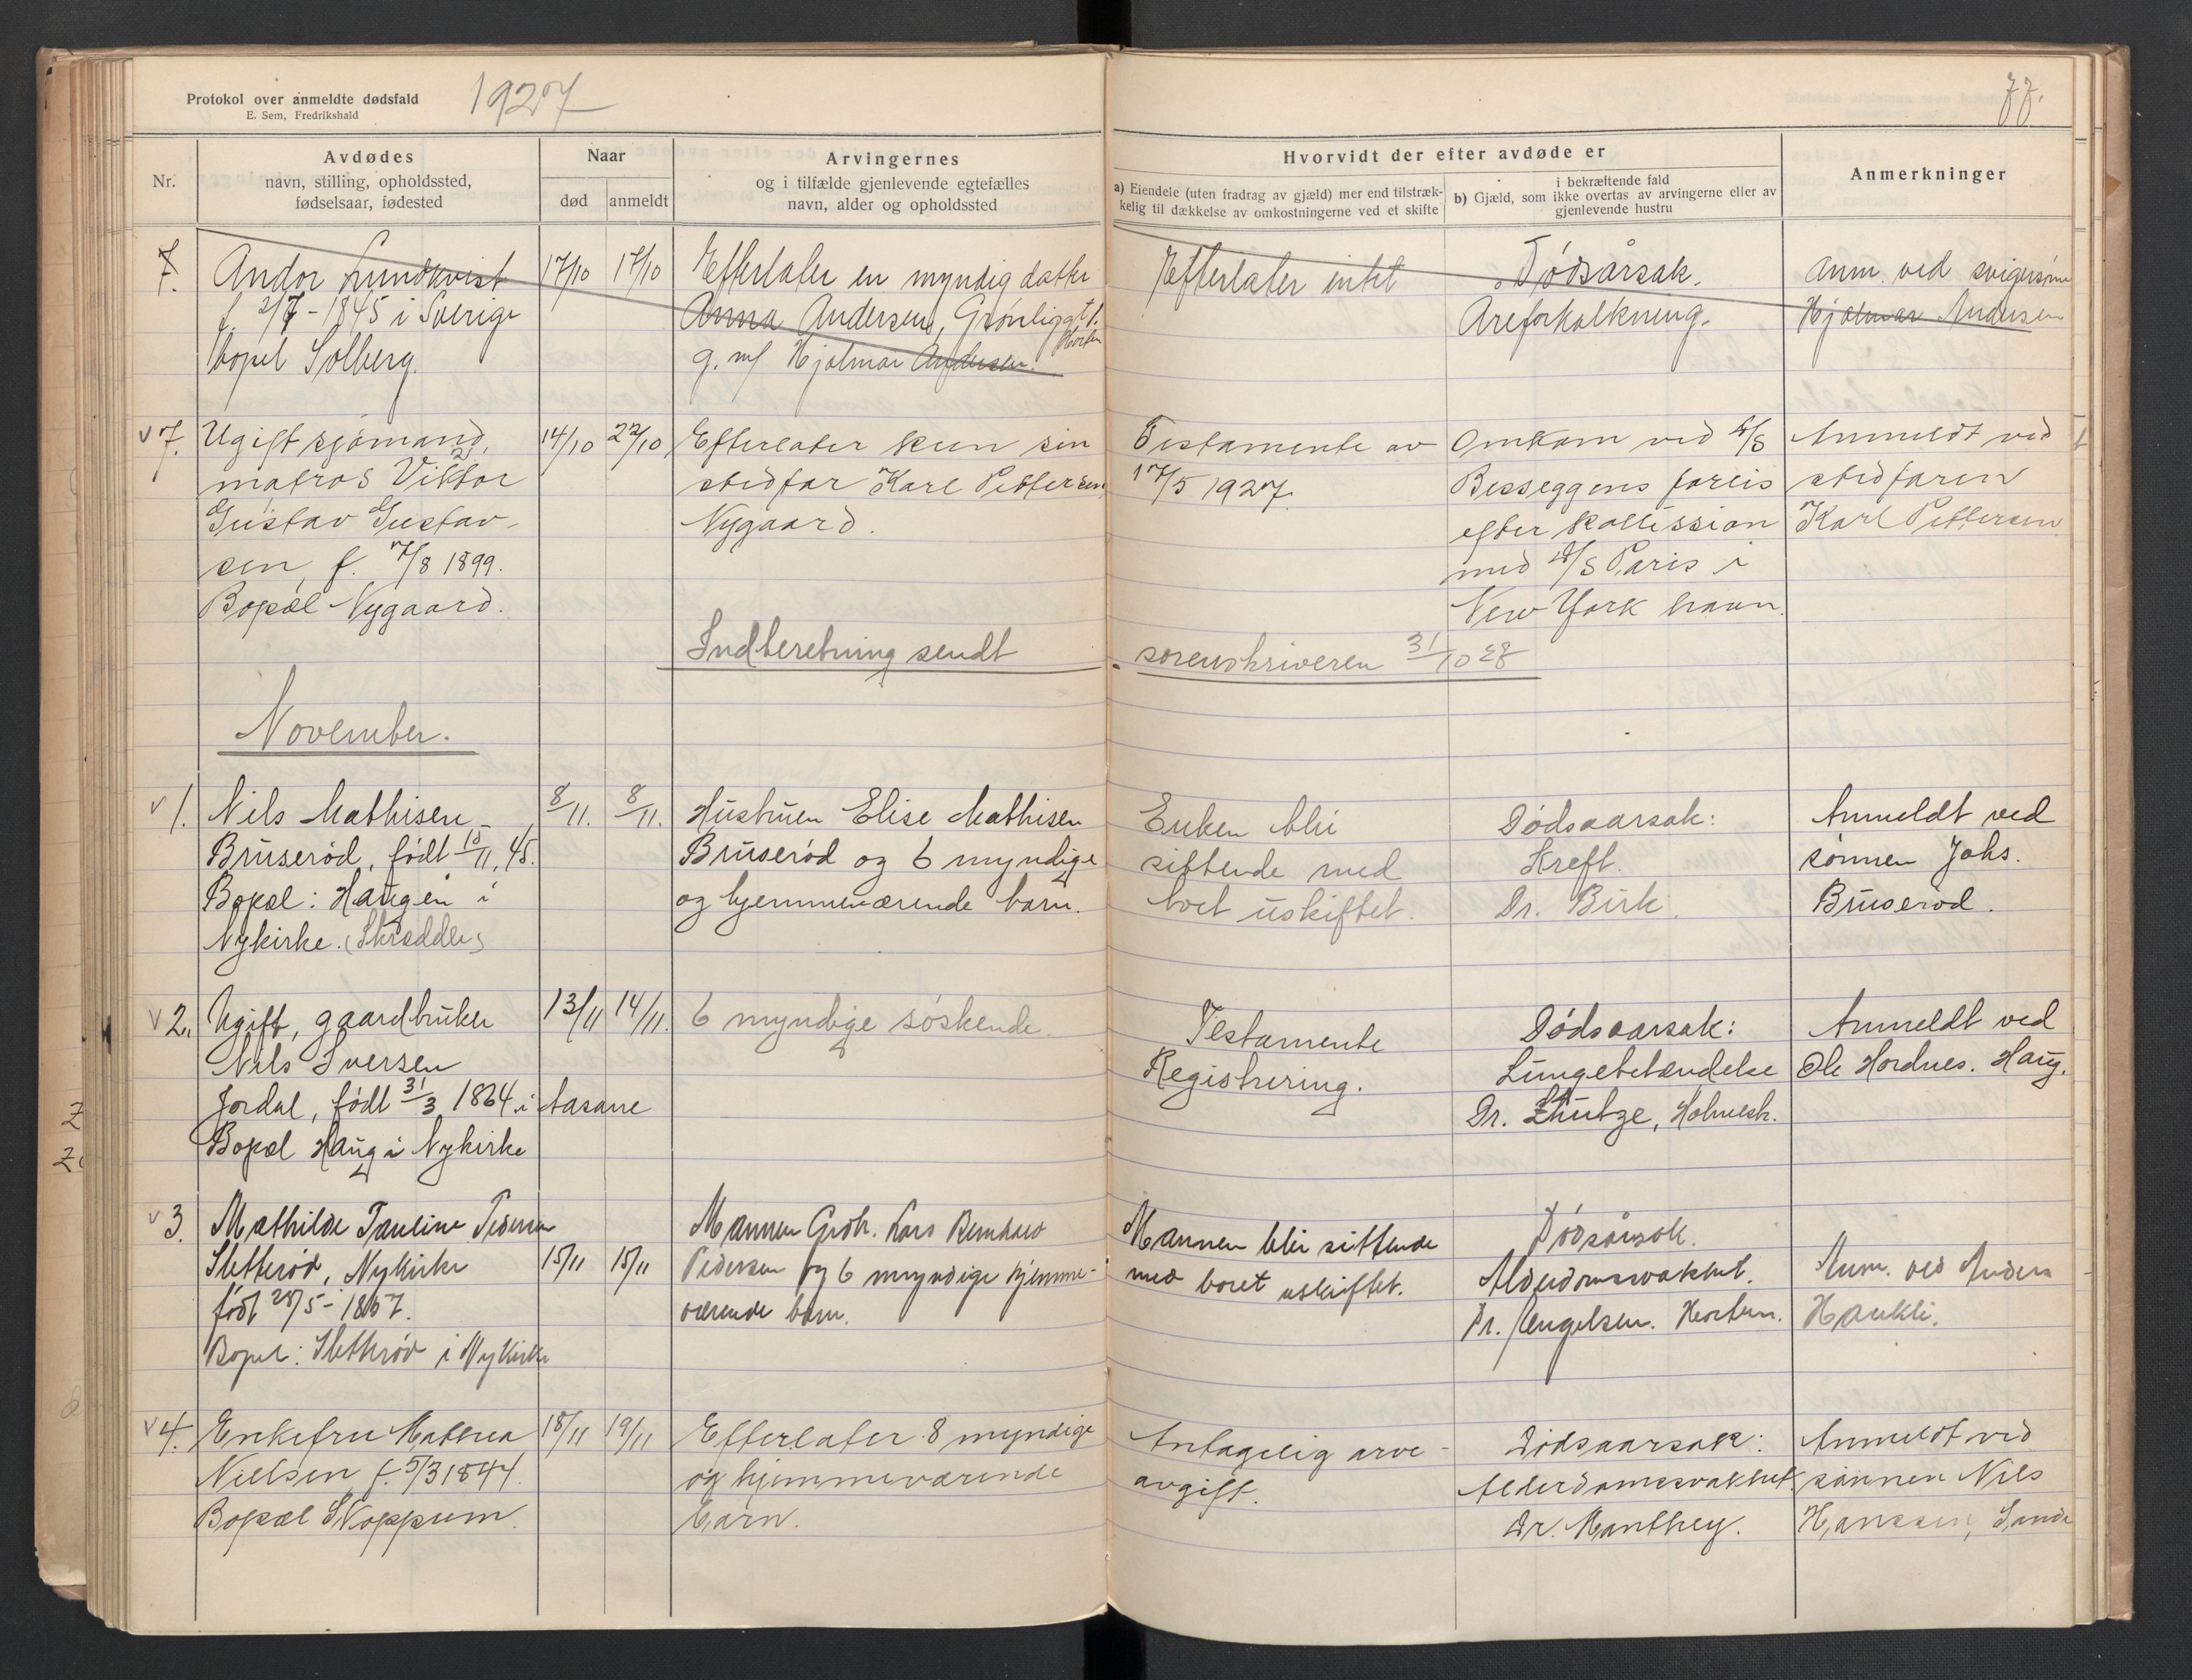 Protokol over anmeldte dødsfald
E. Sem, Fredrikshald
1927
77.
Nr.
Avdødes
navn, stilling, opholdssted,
fødselsaar, fødested
Naar
død
anmeldt
Arvingernes
og i tilfælde gjenlevende egtefælles
navn, alder og opholdssted
Hvorvidt der efter avdøde er
a) Eiendele (uten fradrag av gjæld) mer end tilstræk-
kelig til dækkelse av omkostningerne ved et skifte
i bekræftende fald
b) Gjæld, som ikke overtas av arvingerne eller av
gjenlevende hustru
Anmerkninger
7.
Andor Lundkvist
f. 2/7 - 1845 i Sverige
bopel Solberg.
17/10
17/10
Efterlater en myndig datter
Anna Andersen, Grønliggt 1.
Horten
g. m/ Hjalmar Andersen.
Efterlater intet
Dødsårsak.
Åreforkalkning.
Anm. ved svigersønn
Hjalmar Andersen
v 7.
Ugift sjømand,
matros Viktor
Gustav Gustav-
sen, f. 7/8 1899.
Bopæl Nygaard.
14/10
22/10
Efterlater kun sin
stedfar Karl Pettersen,
Nygaard.
Testamente av
17/5 1927.
Omkom ved S/S
Besseggens forlis
efter kollission
med S/S Paris i
New York havn.
Anmeldt ved
stedfaren
Karl Pettersen
Indberetning sendt
sorenskriveren 31/10 27
November.
v 1.
Nils Mathisen
Bruserød, født 18/11, 45.
Bopæl: Haugen i
Nykirke. (Skrædder)
8/11.
8/11.
Hustruen Elise Mathisen
Bruserød og 6 myndige
og hjemmeværende barn.
Enken blir
sittende med
boet uskiftet.
Dødsaarsak:
Kreft.
Dr. Birk.
Anmeldt ved
sønnen Johs.
Bruserød.
v 2.
Ugift, gaardbruker
Nils Iversen
Jordal, født 31/3 1864 i Aasane
Bopæl Haug i Nykirke
13/11
14/11.
6 myndige søskende.
Testamente
Registrering.
Dødsaarsak:
Lungebetændelse
Dr. , Holmestr.
Anmeldt ved
Ole Hordnes. Haug.
v 3.
Mathilde Pauline Pedersen
Sletterød, Nykirke
født 28/5 - 1857.
Bopel: Sletterød i Nykirke
15/11
15/11
Mannen Grdbr. Lars Bernhard
Pedersen og 6 myndige hjemme-
værende barn.
Mannen blir sittende
med boet uskiftet.
Dødsårsak.
Alderdomssvakhet.
Dr. Horten.
Anm. ved Anders
Haukli.
v 4.
Enkefru Mathea
Nielsen f. 5/3 1844.
Bopæl Skoppum.
18/11
19/11
Efterlater 8 myndige
og hjemmeværende
barn.
Antagelig arve-
avgift.
Dødsaarsak:
Alderdomssvakhet.
Dr. Manthey.
Anmeldt ved
sønnen Nils
Hanssen, Sande